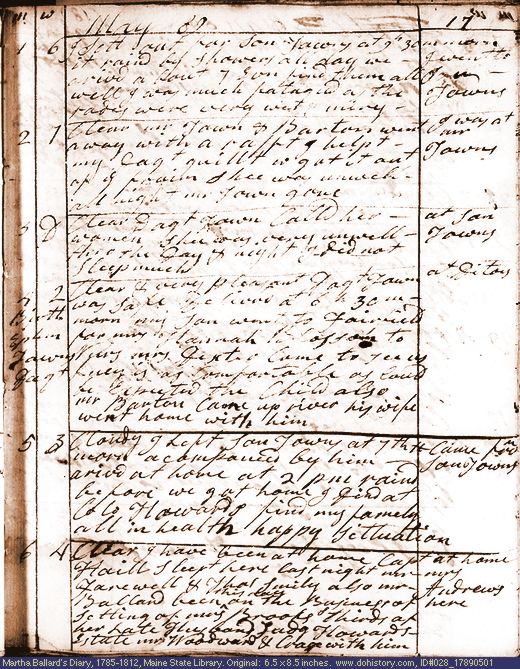 m w May 89 17
1 6 I sett out for Son Towns at 9h 30 m morn I went to
it raind by showers all day we
arivd about 7 Evn find them all Son
well I was much fatagud the Towns
rades were very wet & mirey
2 7 Clear mr Town & Barton went I was at
away with a raft I helpt Son
my Dagt quillt w got it out Towns
of ye fraim Shee was unwell
all night mr Town gone
3 D Clear Dagt Town Calld her at Son
women shee was very unwell Towns
thro the Day & night I did not
sleep much
4 2 Clear & very pleasant Dagt Town at Ditos
was safe Delivered at 6 h 30 m
Birth morn my Son went to Fairfield
for mrs Hannah Blosson to
Towns mrs Dexter Came to see us
Dagt Lucy is as Comfortable as Could
be Expected the Child also
mr Barton Came up river his wife
went home with him
5 3 Cloudy I left Son Towns at 7th Came from
morn accompanied by him Son Towns
arivd at home at 2 pm raind
before we got home I Dind at
Colo Howards find my family
all in health happy Situation
6 4 Clear I have been at home Capt at home
Haill sleept here last night mr mr
Farewell & Thos Smiley also mr Andrews
Ballard been on the Business of here
setling of my thirds of
her late Husband Howards
Estate mr Woodward & with him
Martha Ballard's Diary, 1785-1812, Maine State Library. Original: 6.5 x 8.5 inches. www.dohistory.com, ID#028_17890501